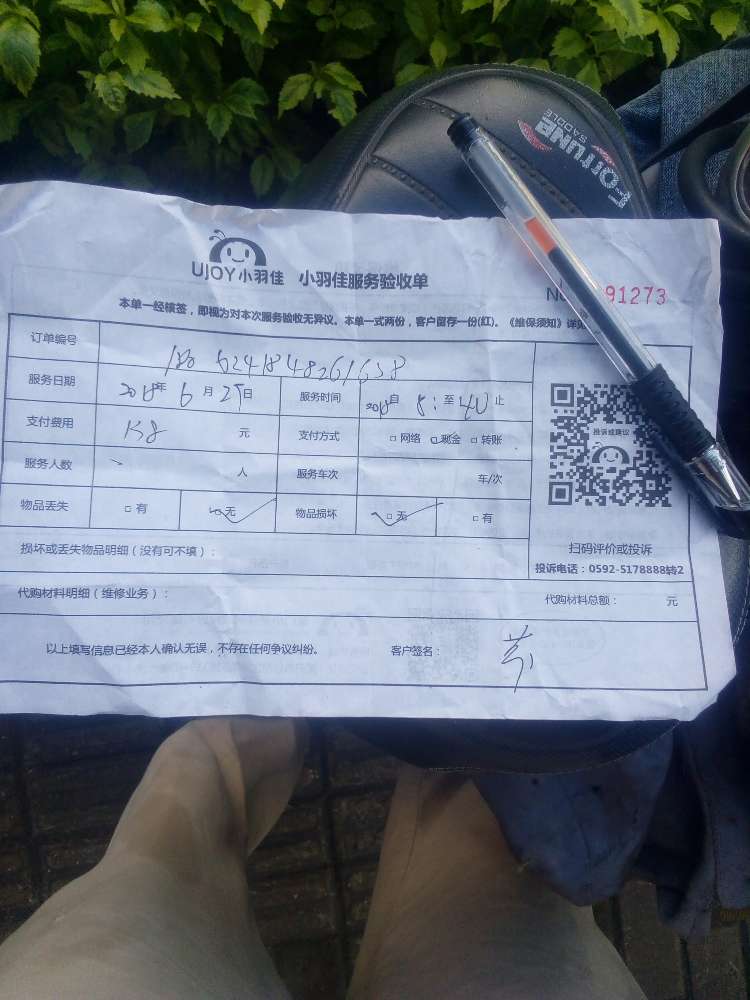 FORTUNE
SADDLE
UJOY小羽佳 小羽佳服务验收单
No 91273
本单一经核签，即视为对本次服务验收无异议。本单一式两份，客户留存一份(红)。《维保须知》详见
订单编号
服务日期 2018年 6 月 25日 服务时间 2018自 8: 至 40 止
支付费用 158 元 支付方式 □ 网络 □ 现金 □ 转账
服务人数 人 服务车次 车/次
物品丢失 □ 有 □ 无 物品损坏 □ 无 □ 有
投诉或建议
扫码评价或投诉
投诉电话：0592-5178888转2
损坏或丢失物品明细（没有可不填）：
代购材料明细（维修业务）： 代购材料总额： 元
以上填写信息已经本人确认无误，不存在任何争议纠纷。 客户签名：